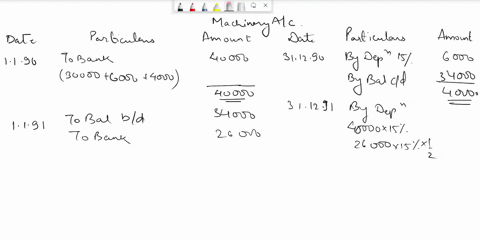 Machinery A/c.
Date Particulars Amount Date Particulars Amount
1.1.90 To Bank 40000 31.12.90 By Depn 15% 6000
(30000+6000+4000) By Bal c/d 34000
40000 40000
1.1.91 To Bal b/d 34000 31.12.91 By Depn
To Bank 26000 40000×15%
26000×15%×1/2